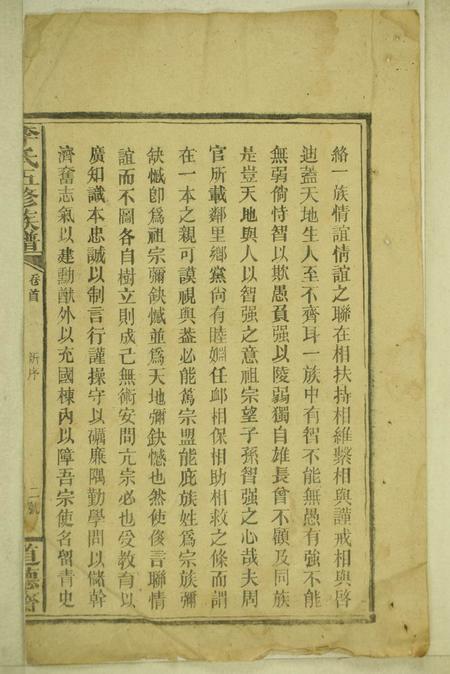 絡一族情誼情誼之聯在相扶持相維繫相與謹戒相與啓
迪蓋天地生人至不齊耳一族中有智不能無愚有強不能
無弱倘恃智以欺愚負强以陵弱獨自雄長曾不顧及同族
是豈天地與人以智强之意祖宗望子孫智强之心哉夫周
官所載鄰里鄉黨尙有睦婣任卹相保相助相救之條而謂
在一本之親可漠視與蓋必能篤宗盟能庇族姓爲宗族彌
缺憾卽爲祖宗彌缺憾並爲天地彌缺憾也然使侈言聯情
誼而不圖各自樹立則成己無術安問亢宗必也受教育以
廣知識本忠誠以制言行謹操守以礪廉隅勤學問以儲幹
濟奮志氣以建勳猷外以充國棟內以障吾宗使名留青史
李氏五修族譜
卷首
新序
二號
道德堂